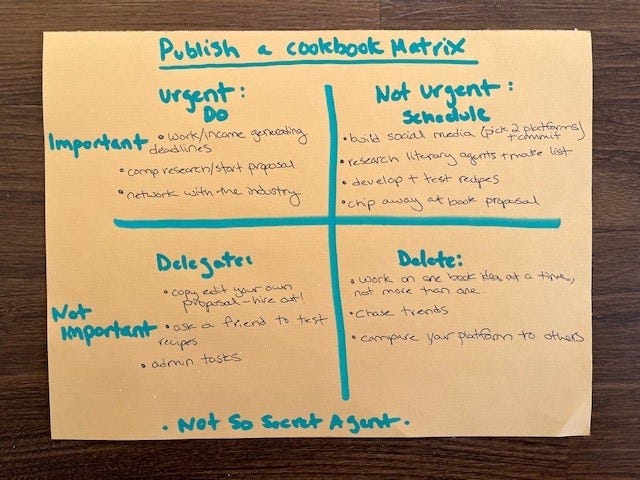 Publish a cookbook Matrix
Urgent:
Do
Not Urgent:
Schedule
Important
• work/income generating
deadlines
• comp research/start proposal
• network with the industry
• build social media (pick 2 platforms)
+ commit
• research literary agents + make list
• develop + test recipes
• chip away at book proposal
Delegate:
Delete:
Not
Important
• copy edit your own
proposal - hire out!
• ask a friend to test
recipes
• admin tasks
• work on one book idea at a time,
not more than one.
• chase trends
• compare your platform to others
• Not So Secret Agent •